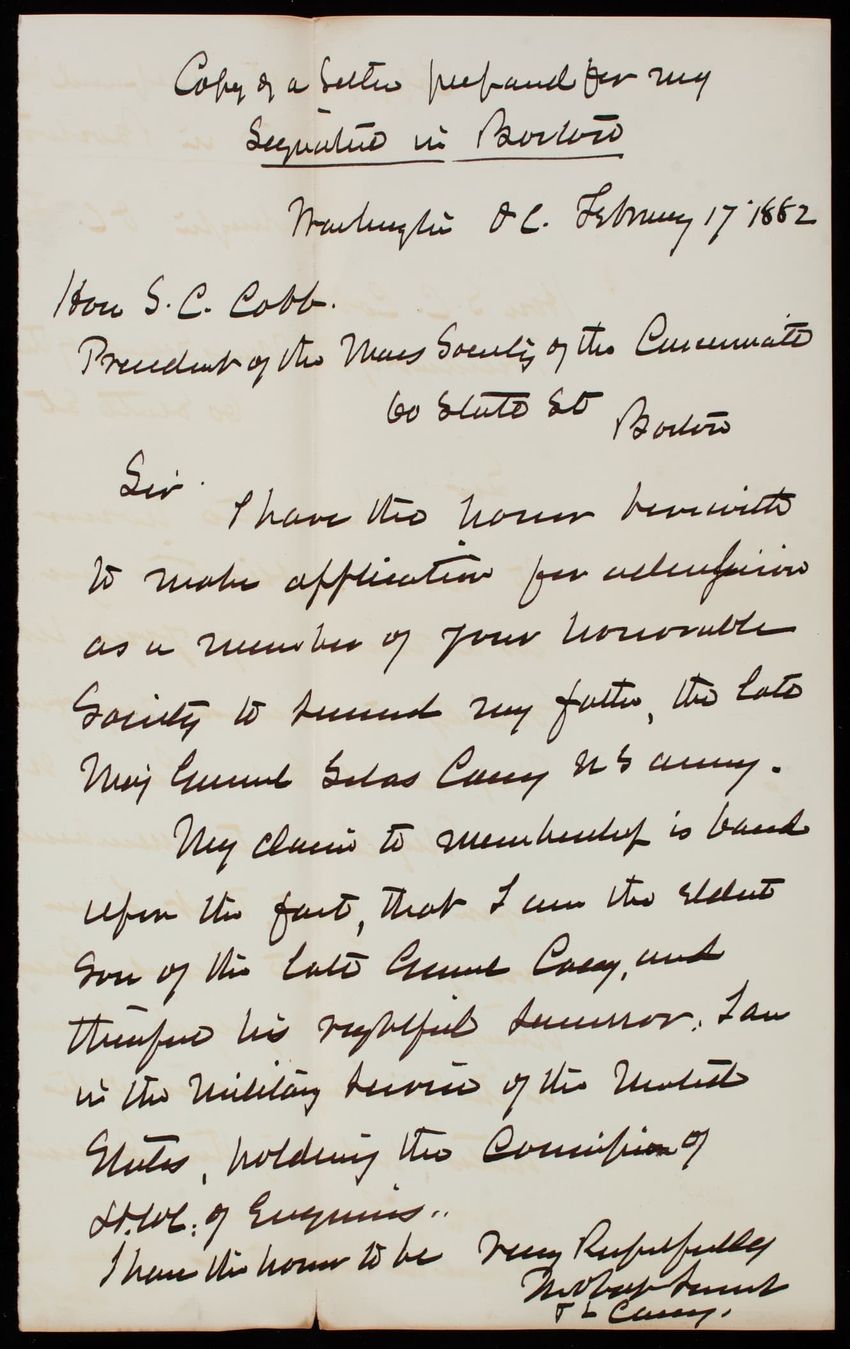 Copy of a letter prepared for my
Signature in Boston
Washington D C. February 17 1882
Hon S. C. Cobb.
President of the Mass Society of the Cincinnati
60 State St
Boston
Sir.
I have the honor herewith
to make application for admission
as a member of your honorable
Society to succeed my father, the late
Maj General Silas Casey U S Army.
My claim to membership is based
upon the fact, that I am the eldest
son of the late General Casey, and
therefore his rightful successor. I am
in the Military Service of the United
States, holding the Commission of
Lt. Col. of Engineers.
I have the honor to be very Respectfully
Your obedt Servant
T L Casey.